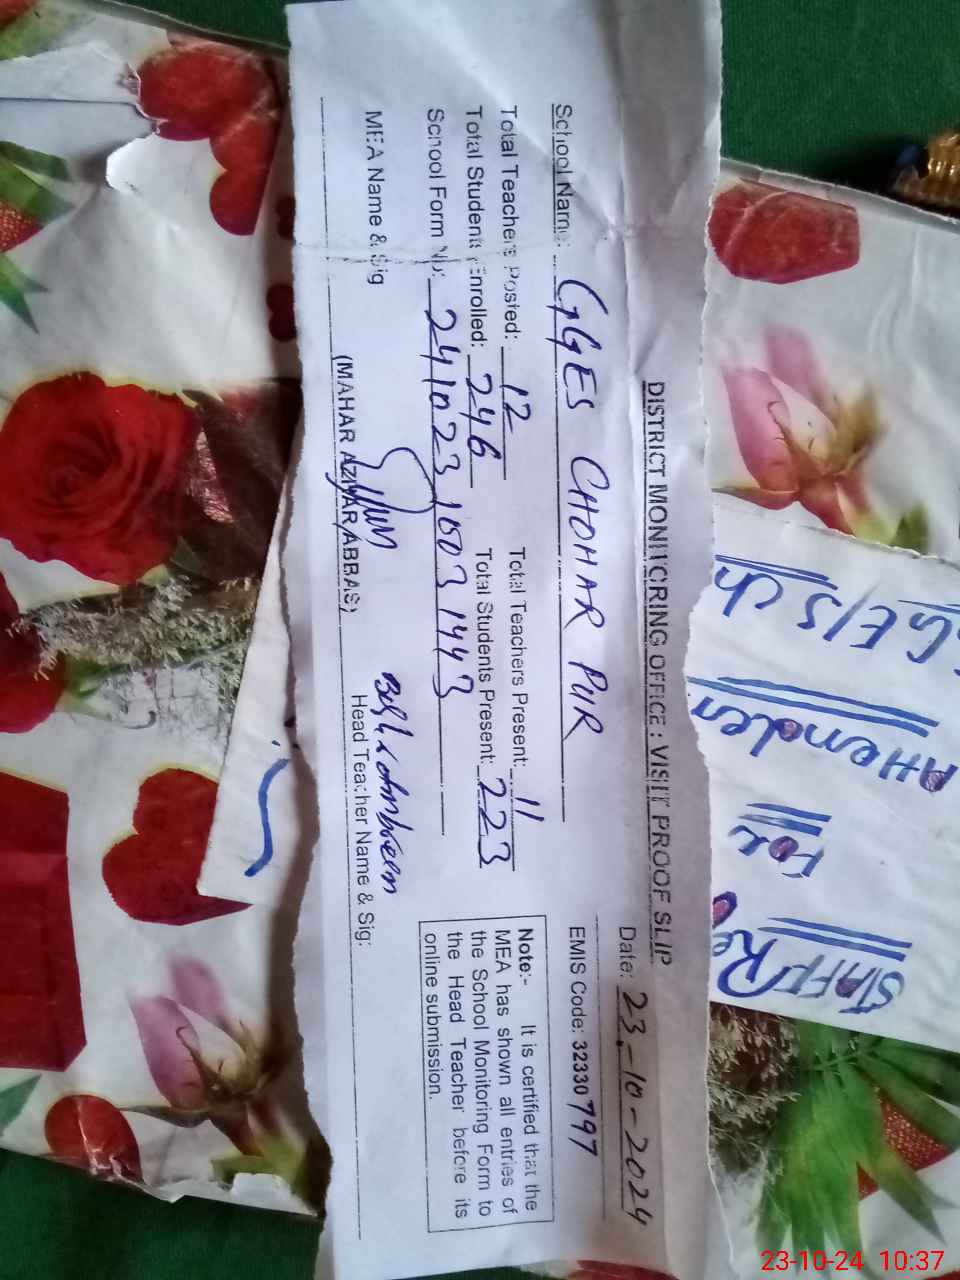 DISTRICT MONITORING OFFICE : VISIT PROOF SLIP
Date: 23-10-2024
School Name: GGES CHOHAR PUR
EMIS Code: 32330797
Total Teachers Posted: 12 Total Teachers Present: 11
Total Students Enrolled: 246 Total Students Present: 223
School Form No: 241023 1503 1443
MEA Name & Sig
(MAHAR AZHAR ABBAS)
Head Teacher Name & Sig:
Note:- It is certified that the
MEA has shown all entries of
the School Monitoring Form to
the Head Teacher before its
online submission.
STAFF
23-10-24 10:37